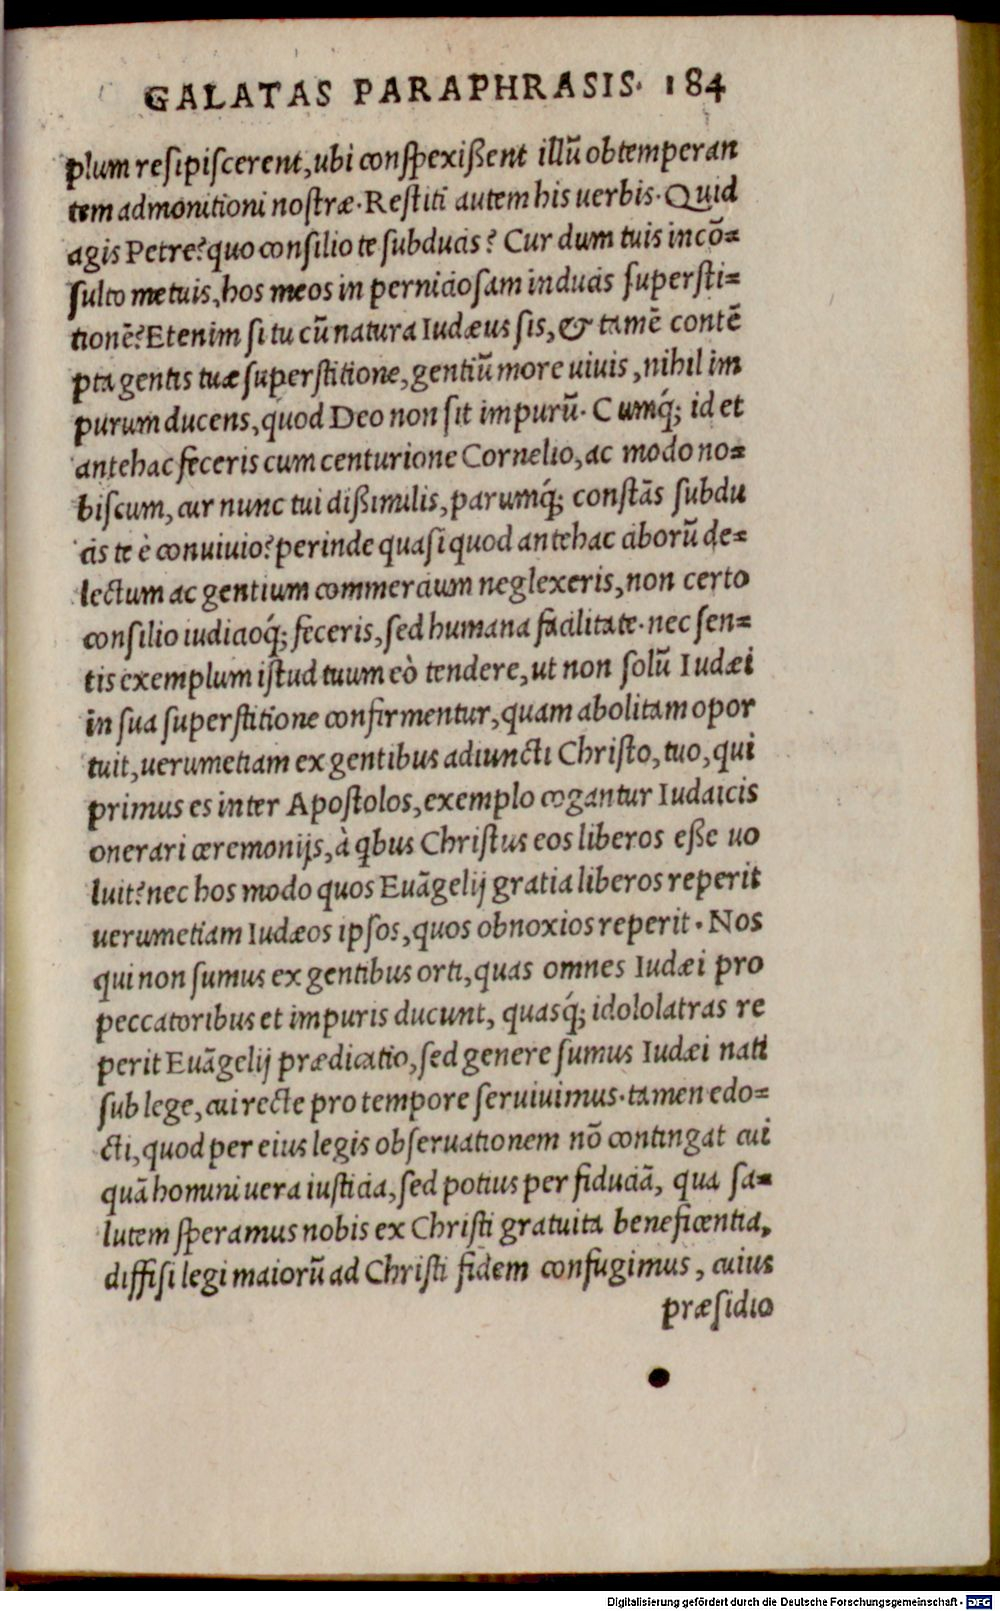 GALATAS PARAPHRASIS. 184
plum resipiscerent, ubi conspexißent illũ obtemperan
tem admonitioni nostræ. Restiti autem his uerbis. Quid
agis Petre? quo consilio te subducis? Cur dum tuis incõ=
sulto metuis, hos meos in perniciosam inducis supersti=
tionẽ? Etenim si tu cũ natura Iudæus sis, & tamẽ contẽ
pta gentis tuæ superstitione, gentiũ more uiuis, nihil im
purum ducens, quod Deo non sit impurũ. Cumq́; id et
antehac feceris cum centurione Cornelio, ac modo no=
biscum, cur nunc tui dißimilis, parumq́; constãs subdu
cis te è conuiuio? perinde quasi quod antehac ciborũ de=
lectum ac gentium commercium neglexeris, non certo
consilio iudicioq́; feceris, sed humana facilitate. nec sen=
tis exemplum istud tuum eò tendere, ut non solũ Iudæi
in sua superstitione confirmentur, quam abolitam opor
tuit, uerumetiam ex gentibus adiuncti Christo, tuo, qui
primus es inter Apostolos, exemplo cogantur Iudaicis
onerari ceremonijs, à qbus Christus eos liberos eße uo
luit? nec hos modo quos Euãgelij gratia liberos reperit
uerumetiam Iudæos ipsos, quos obnoxios reperit. Nos
qui non sumus ex gentibus orti, quas omnes Iudæi pro
peccatoribus et impuris ducunt, quasq́; idololatras re
perit Euãgelij prædicatio, sed genere sumus Iudæi nati
sub lege, cui recte pro tempore seruiuimus. tamen edo=
cti, quod per eius legis obseruationem nõ contingat cui
quã homini uera iusticia, sed potius per fiduciã, qua sa=
lutem speramus nobis ex Christi gratuita beneficentia,
diffisi legi maiorũ ad Christi fidem confugimus, cuius
præsidio
Digitalisierung gefördert durch die Deutsche Forschungsgemeinschaft - DFG